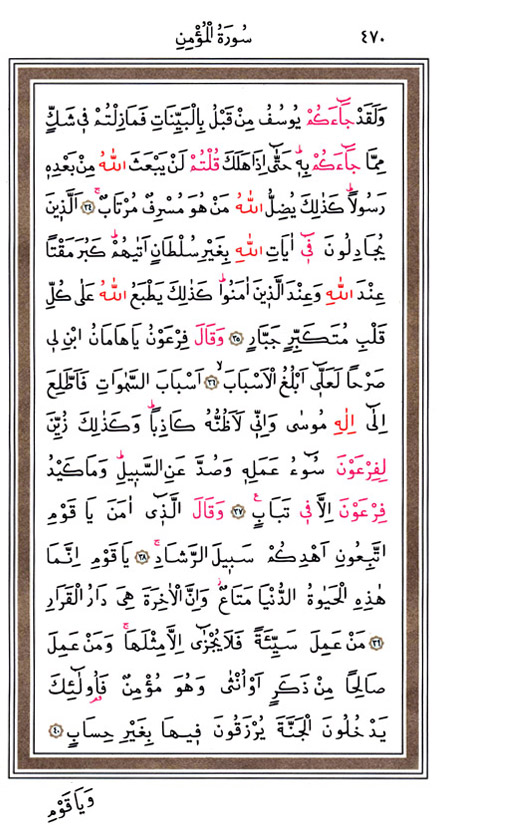 ٤٧٠ سُورَةُ الْمُؤْمِنِ
وَلَقَدْ جَٓاءَكُمْ يُوسُفُ مِنْ قَبْلُ بِالْبَيِّنَاتِ فَمَازِلْتُمْ فٖى شَكٍّ
مِمَّا جَٓاءَكُمْ بِهٖؕ حَتّٰٓى اِذَا هَلَكَ قُلْتُمْ لَنْ يَبْعَثَ اللّٰهُ مِنْ بَعْدِهٖ
رَسُولاًؕ كَذٰلِكَ يُضِلُّ اللّٰهُ مَنْ هُوَ مُسْرِفٌ مُرْتَابٌۚ ﴿٣٤﴾ اَلَّذٖينَ
يُجَادِلُونَ فٖٓى اٰيَاتِ اللّٰهِ بِغَيْرِ سُلْطَانٍ اَتٰيهُمْؕ كَبُرَ مَقْتًا
عِنْدَ اللّٰهِ وَعِنْدَ الَّذٖينَ اٰمَنُواؕ كَذٰلِكَ يَطْبَعُ اللّٰهُ عَلٰى كُلِّ
قَلْبِ مُتَكَبِّرٍ جَبَّارٍ ﴿٣٥﴾ وَقَالَ فِرْعَوْنُ يَا هَامَانُ ابْنِ لٖى
صَرْحًا لَعَلّٖٓى اَبْلُغُ الْاَسْبَابَۙ ﴿٣٦﴾ اَسْبَابَ السَّمٰوَاتِ فَاَطَّلِعَ
اِلٰٓى اِلٰهِ مُوسٰى وَاِنّٖى لَاَظُنُّهُ كَاذِبًاؕ وَكَذٰلِكَ زُيِّنَ
لِفِرْعَوْنَ سُٓوءُ عَمَلِهٖ وَصُدَّ عَنِ السَّبٖيلِؕ وَمَا كَيْدُ
فِرْعَوْنَ اِلَّا فٖى تَبَابٍۚ ﴿٣٧﴾ وَقَالَ الَّذٖٓى اٰمَنَ يَا قَوْمِ
اتَّبِعُونِ اَهْدِكُمْ سَبٖيلَ الرَّشَادِۚ ﴿٣٨﴾ يَا قَوْمِ اِنَّمَا
هٰذِهِ الْحَيٰوةُ الدُّنْيَا مَتَاعٌؗ وَاِنَّ الْاٰخِرَةَ هِىَ دَارُ الْقَرَارِ
﴿٣٩﴾ مَنْ عَمِلَ سَيِّئَةً فَلَا يُجْزٰٓى اِلَّا مِثْلَهَاۚ وَمَنْ عَمِلَ
صَالِحًا مِنْ ذَكَرٍ اَوْ اُنْثٰى وَهُوَ مُؤْمِنٌ فَاُولٰٓئِكَ
يَدْخُلُونَ الْجَنَّةَ يُرْزَقُونَ فٖيهَا بِغَيْرِ حِسَابٍ ﴿٤٠﴾
وَيَا قَوْمِ